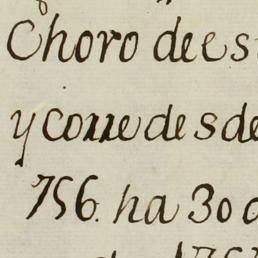 Choro de es
y corre desde
756. ha 30